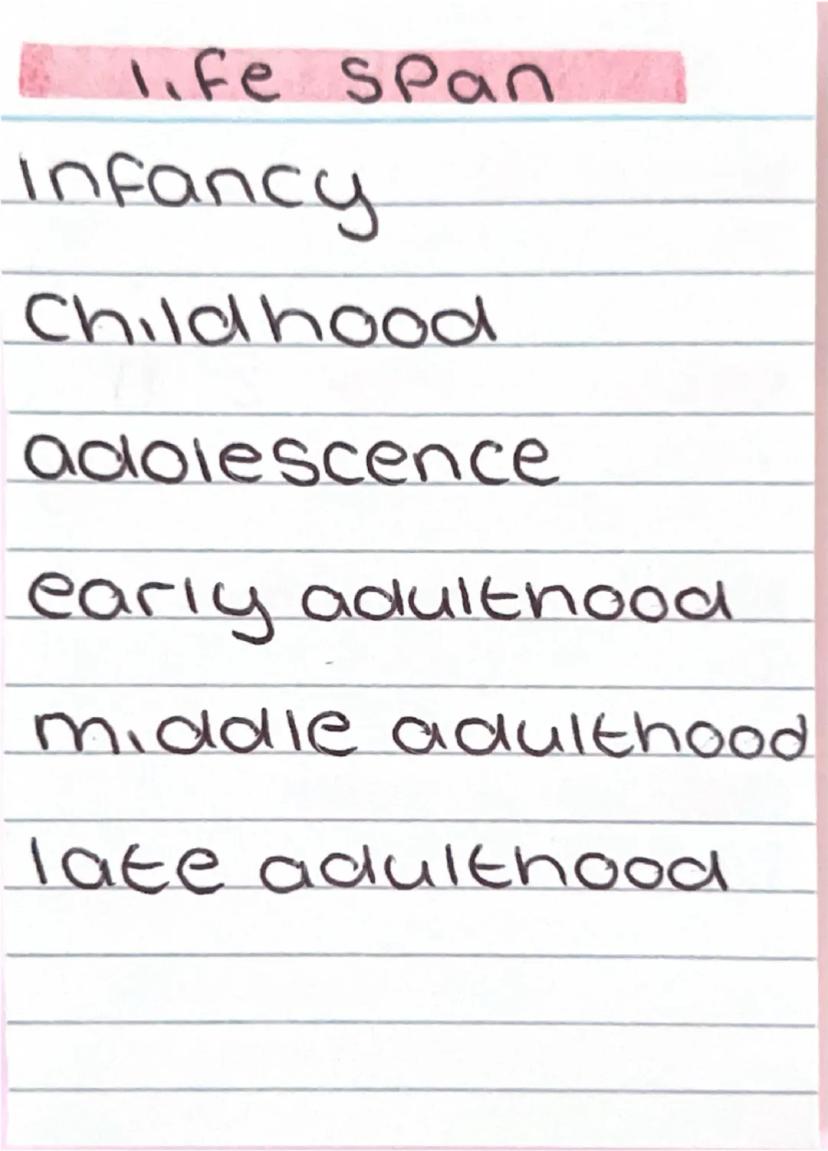 life span
infancy
Childhood
adolescence
early adulthood
middle adulthood
late adulthood